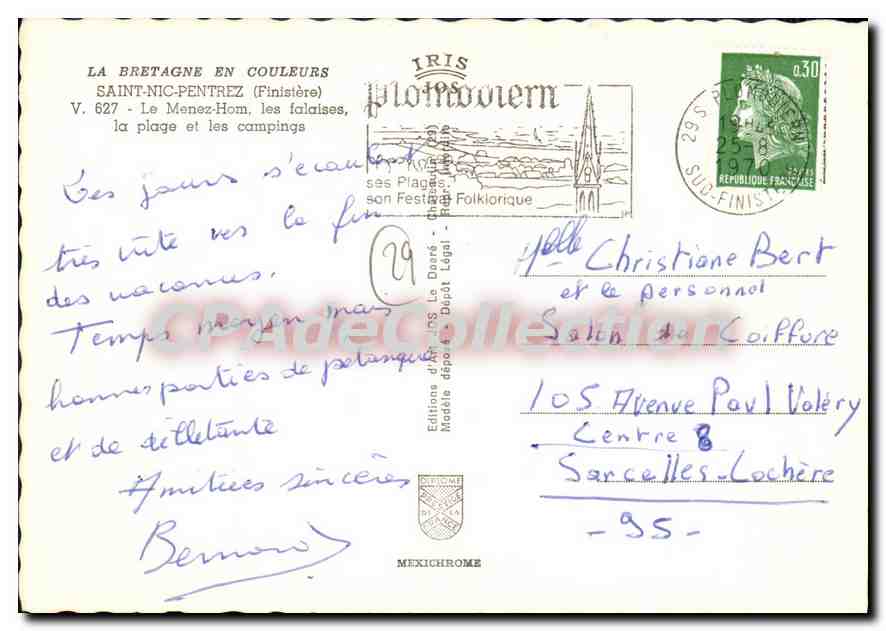 LA BRETAGNE EN COULEURS
SAINT-NIC-PENTREZ (Finistère)
V. 627 - Le Menez-Hom, les falaises,
la plage et les campings
IRIS
JOS
Plomodiern
ses Plages.
son Festival Folklorique
0,30
POSTES
REPUBLIQUE FRANÇAISE
29S PLOMODIERN
19H
25-8
SUD-FINISTERE
Les jours s'écoulent
très vite vers la fin
des vacances.
Temps moyen mais
bonnes parties de pétanque
et de
Amitiées sincères
Bernard
29
Editions d'Art JOS Le Doaré - Châteaulin (29)
Modèle déposé - Dépôt Légal - Repr. Interdite
Melle Christiane Bert
et le personnel
Salon de Coiffure
105 Avenue Paul Valéry
Centre 8
Sarcelles-Lochère
- 95 -
DIPLOME
PRESTIGE
DE LA
FRANCE
MEXICHROME
CPAdeCollection.com